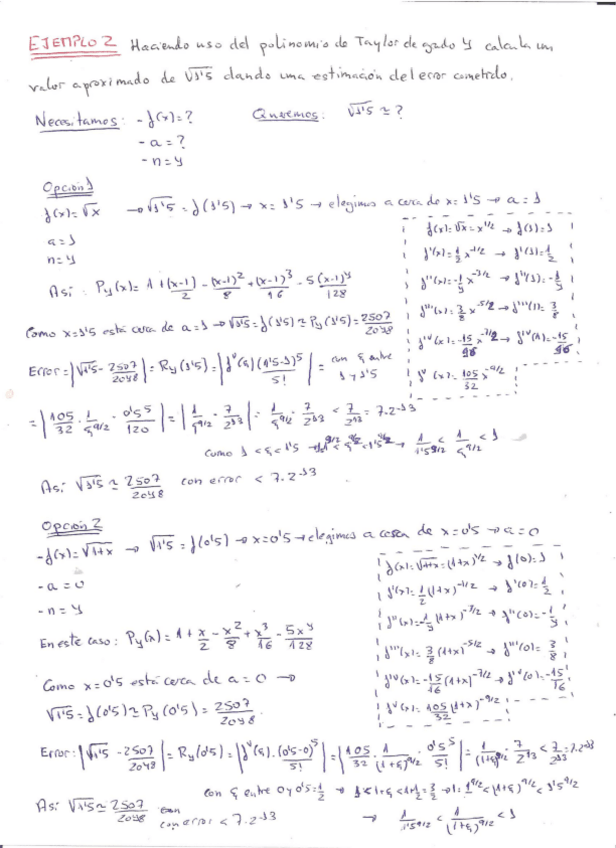 EJEMPLO 2 Haciendo uso del polinomio de Taylor de grado 4 calcula un
valor aproximado de √1'5 dando una estimación del error cometido.
Necesitamos: - f(x)=? Queremos: √1'5 ≃ ?
- a = ?
- n = 4
Opción 1
f(x)=√x → √1'5 = f(1'5) → x = 1'5 → elegimos a cerca de x = 1'5 → a = 1
a = 1
n = 4
f(x)=√x = x^(1/2) → f(1)=1
f'(x)=1/2 x^(-1/2) → f'(1)=1/2
f''(x)=-1/4 x^(-3/2) → f''(1)=-1/4
f'''(x)=3/8 x^(-5/2) → f'''(1)=3/8
f^IV(x)=-15/16 x^(-7/2) → f^IV(1)=-15/16
f^V(x)=105/32 x^(-9/2)
Así: P4(x)= 1 + (x-1)/2 - (x-1)^2/8 + (x-1)^3/16 - 5(x-1)^4/128
Como x=1'5 está cerca de a=1 → √1'5 = f(1'5) ≃ P4(1'5) = 2507/2048
Error = |√1'5 - 2507/2048| = R4(1'5) = |f^V(ξ)(1'5-1)^5/5!| = con ξ entre 1 y 1'5
= |105/32 · 1/ξ^(9/2) · 0'5^5/120| = |1/ξ^(9/2) · 7/2^13| = 1/ξ^(9/2) · 7/2^13 < 7/2^13 = 7·2^-13
como 1 < ξ < 1'5 → 1^(9/2) < ξ^(9/2) < 1'5^(9/2) → 1/1'5^(9/2) < 1/ξ^(9/2) < 1
Así √1'5 ≃ 2507/2048 con error < 7·2^-13
Opción 2
- f(x)=√1+x → √1'5 = f(0'5) → x=0'5 → elegimos a cerca de x=0'5 → a=0
- a = 0
- n = 4
f(x)=√1+x = (1+x)^(1/2) → f(0)=1
f'(x)=1/2 (1+x)^(-1/2) → f'(0)=1/2
f''(x)=-1/4 (1+x)^(-3/2) → f''(0)=-1/4
f'''(x)=3/8 (1+x)^(-5/2) → f'''(0)=3/8
f^IV(x)=-15/16 (1+x)^(-7/2) → f^IV(0)=-15/16
f^V(x)=105/32 (1+x)^(-9/2)
En este caso: P4(x)= 1 + x/2 - x^2/8 + x^3/16 - 5x^4/128
Como x=0'5 está cerca de a=0 →
√1'5 = f(0'5) ≃ P4(0'5) = 2507/2048.
Error: |√1'5 - 2507/2048| = R4(0'5) = |f^V(ξ)·(0'5-0)^5/5!| = |105/32 · 1/(1+ξ)^(9/2) · 0'5^5/5!| = 1/(1+ξ)^(9/2) · 7/2^13 < 7/2^13 = 7·2^-13
con ξ entre 0 y 0'5=1/2 → 1<1+ξ<1+1/2=3/2 → 1=1^(9/2)<(1+ξ)^(9/2)<1'5^(9/2)
Así √1'5 ≃ 2507/2048 con
con error < 7·2^-13 → 1/1'5^(9/2) < 1/(1+ξ)^(9/2) < 1